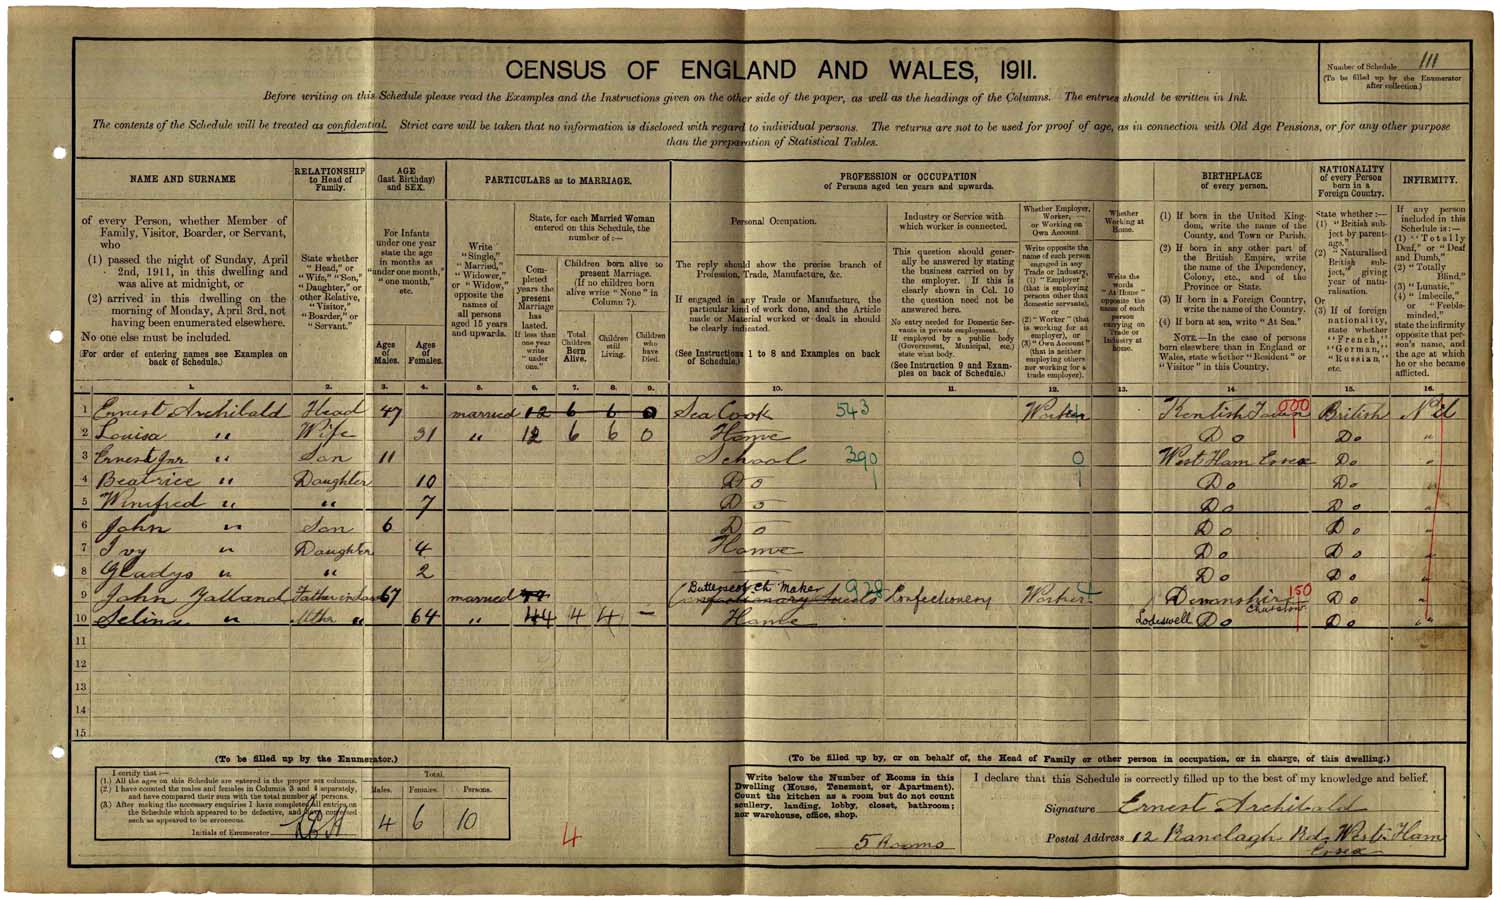 CENSUS OF ENGLAND AND WALES, 1911.
Number of Schedule 111
(To be filled up by the Enumerator
after collection.)
Before writing on this Schedule please read the Examples and the Instructions given on the other side of the paper, as well as the headings of the Columns. The entries should be written in Ink.
The contents of the Schedule will be treated as confidential. Strict care will be taken that no information is disclosed with regard to individual persons. The returns are not to be used for proof of age, as in connection with Old Age Pensions, or for any other purpose
than the preparation of Statistical Tables.
NAME AND SURNAME
of every Person, whether Member of
Family, Visitor, Boarder, or Servant,
who
(1) passed the night of Sunday, April
2nd, 1911, in this dwelling and
was alive at midnight, or
(2) arrived in this dwelling on the
morning of Monday, April 3rd, not
having been enumerated elsewhere.
No one else must be included.
(For order of entering names see Examples on
back of Schedule.)
RELATIONSHIP
to Head of
Family.
State whether
"Head," or
"Wife," "Son,"
"Daughter," or
other Relative,
"Visitor,"
"Boarder," or
"Servant."
AGE
(last Birthday)
and SEX.
For Infants
under one year
state the age
in months as
"under one month,"
"one month,"
etc.
Ages
of
Males.
Ages
of
Females.
PARTICULARS as to MARRIAGE.
Write
"Single,"
"Married,"
"Widower,"
or "Widow,"
opposite the
names of
all persons
aged 15 years
and upwards.
State, for each Married Woman
entered on this Schedule, the
number of :—
Completed
years the
present
Marriage
has
lasted.
If less than
one year
write
"under
one."
Children born alive to
present Marriage.
(If no children born
alive write "None" in
Column 7).
Total
Children
Born
Alive.
Children
still
Living.
Children
who
have
Died.
PROFESSION or OCCUPATION
of Persons aged ten years and upwards.
Personal Occupation.
The reply should show the precise branch of
Profession, Trade, Manufacture, &c.
If engaged in any Trade or Manufacture, the
particular kind of work done, and the Article
made or Material worked or dealt in should
be clearly indicated.
(See Instructions 1 to 8 and Examples on back
of Schedule.)
Industry or Service with
which worker is connected.
This question should generally
be answered by stating
the business carried on by
the employer. If this is
clearly shown in Col. 10
the question need not be
answered here.
No entry needed for Domestic Servants
in private employment.
If employed by a public body
(Government, Municipal, etc.)
state what body.
(See Instruction 9 and Examples
on back of Schedule.)
Whether Employer,
Worker,
or Working on
Own Account.
Write opposite the
name of each person
engaged in any
Trade or Industry,
(1) "Employer"
(that is employing
persons other than
domestic servants),
or
(2) "Worker" (that
is working for an
employer), or
(3) "Own Account"
(that is neither
employing others
nor working for a
trade employer).
Whether
Working at
Home.
Write the
words
"At Home"
opposite the
name of each
person
carrying on
Trade or
Industry at
home.
BIRTHPLACE
of every person.
(1) If born in the United Kingdom,
write the name of the
County, and Town or Parish.
(2) If born in any other part of
the British Empire, write
the name of the Dependency,
Colony, etc., and of the
Province or State.
(3) If born in a Foreign Country,
write the name of the Country.
(4) If born at sea, write "At Sea."
NOTE.—In the case of persons
born elsewhere than in England or
Wales, state whether "Resident" or
"Visitor" in this Country.
NATIONALITY
of every Person
born in a
Foreign Country.
State whether :—
(1) "British subject
by parentage,"
(2) "Naturalised
British subject,"
giving
year of naturalisation.
Or
(3) If of foreign
nationality,
state whether
"French,"
"German,"
"Russian,"
etc.
INFIRMITY.
If any person
included in this
Schedule is :—
(1) "Totally
Deaf," or "Deaf
and Dumb,"
(2) "Totally
Blind,"
(3) "Lunatic,"
(4) "Imbecile,"
or "Feeble-minded,"
state the infirmity
opposite that person's
name, and
the age at which
he or she became
afflicted.
1. 2. 3. 4. 5. 6. 7. 8. 9. 10. 11. 12. 13. 14. 15. 16.
1 Ernest Archibald Head 47 married 12 6 6 0 Sea Cook 543 Worker Kentish Town 000 British Nil
2 Louisa " Wife 31 " 12 6 6 0 Home Do Do "
3 Ernest Jnr " Son 11 School 390 0 West Ham Essex Do "
4 Beatrice " Daughter 10 Do Do Do "
5 Winifred " " 7 Do Do Do "
6 John " Son 6 Do Do Do "
7 Ivy " Daughter 4 Home Do Do "
8 Gladys " " 2 — Do Do "
9 John Yalland Father in law 67 married 44 Butterscotch Maker 928 Confectionery Worker Devonshire 150 Do "
10 Selina " Mother " 64 " 44 4 4 — Home Lodiswell Do Do "
11
12
13
14
15
(To be filled up by the Enumerator.)
I certify that :—
(1.) All the ages on this Schedule are entered in the proper sex columns.
(2.) I have counted the males and females in Columns 3 and 4 separately,
and have compared their sum with the total number of persons.
(3.) After making the necessary enquiries I have completed all entries on
the Schedule which appeared to be defective, and have corrected
such as appeared to be erroneous.
Initials of Enumerator
Total.
Males. Females. Persons.
4 6 10
4
(To be filled up by, or on behalf of, the Head of Family or other person in occupation, or in charge, of this dwelling.)
Write below the Number of Rooms in this
Dwelling (House, Tenement, or Apartment).
Count the kitchen as a room but do not count
scullery, landing, lobby, closet, bathroom;
nor warehouse, office, shop.
5 Rooms
I declare that this Schedule is correctly filled up to the best of my knowledge and belief.
Signature Ernest Archibald
Postal Address 12 Ranelagh Rd, West Ham
Essex